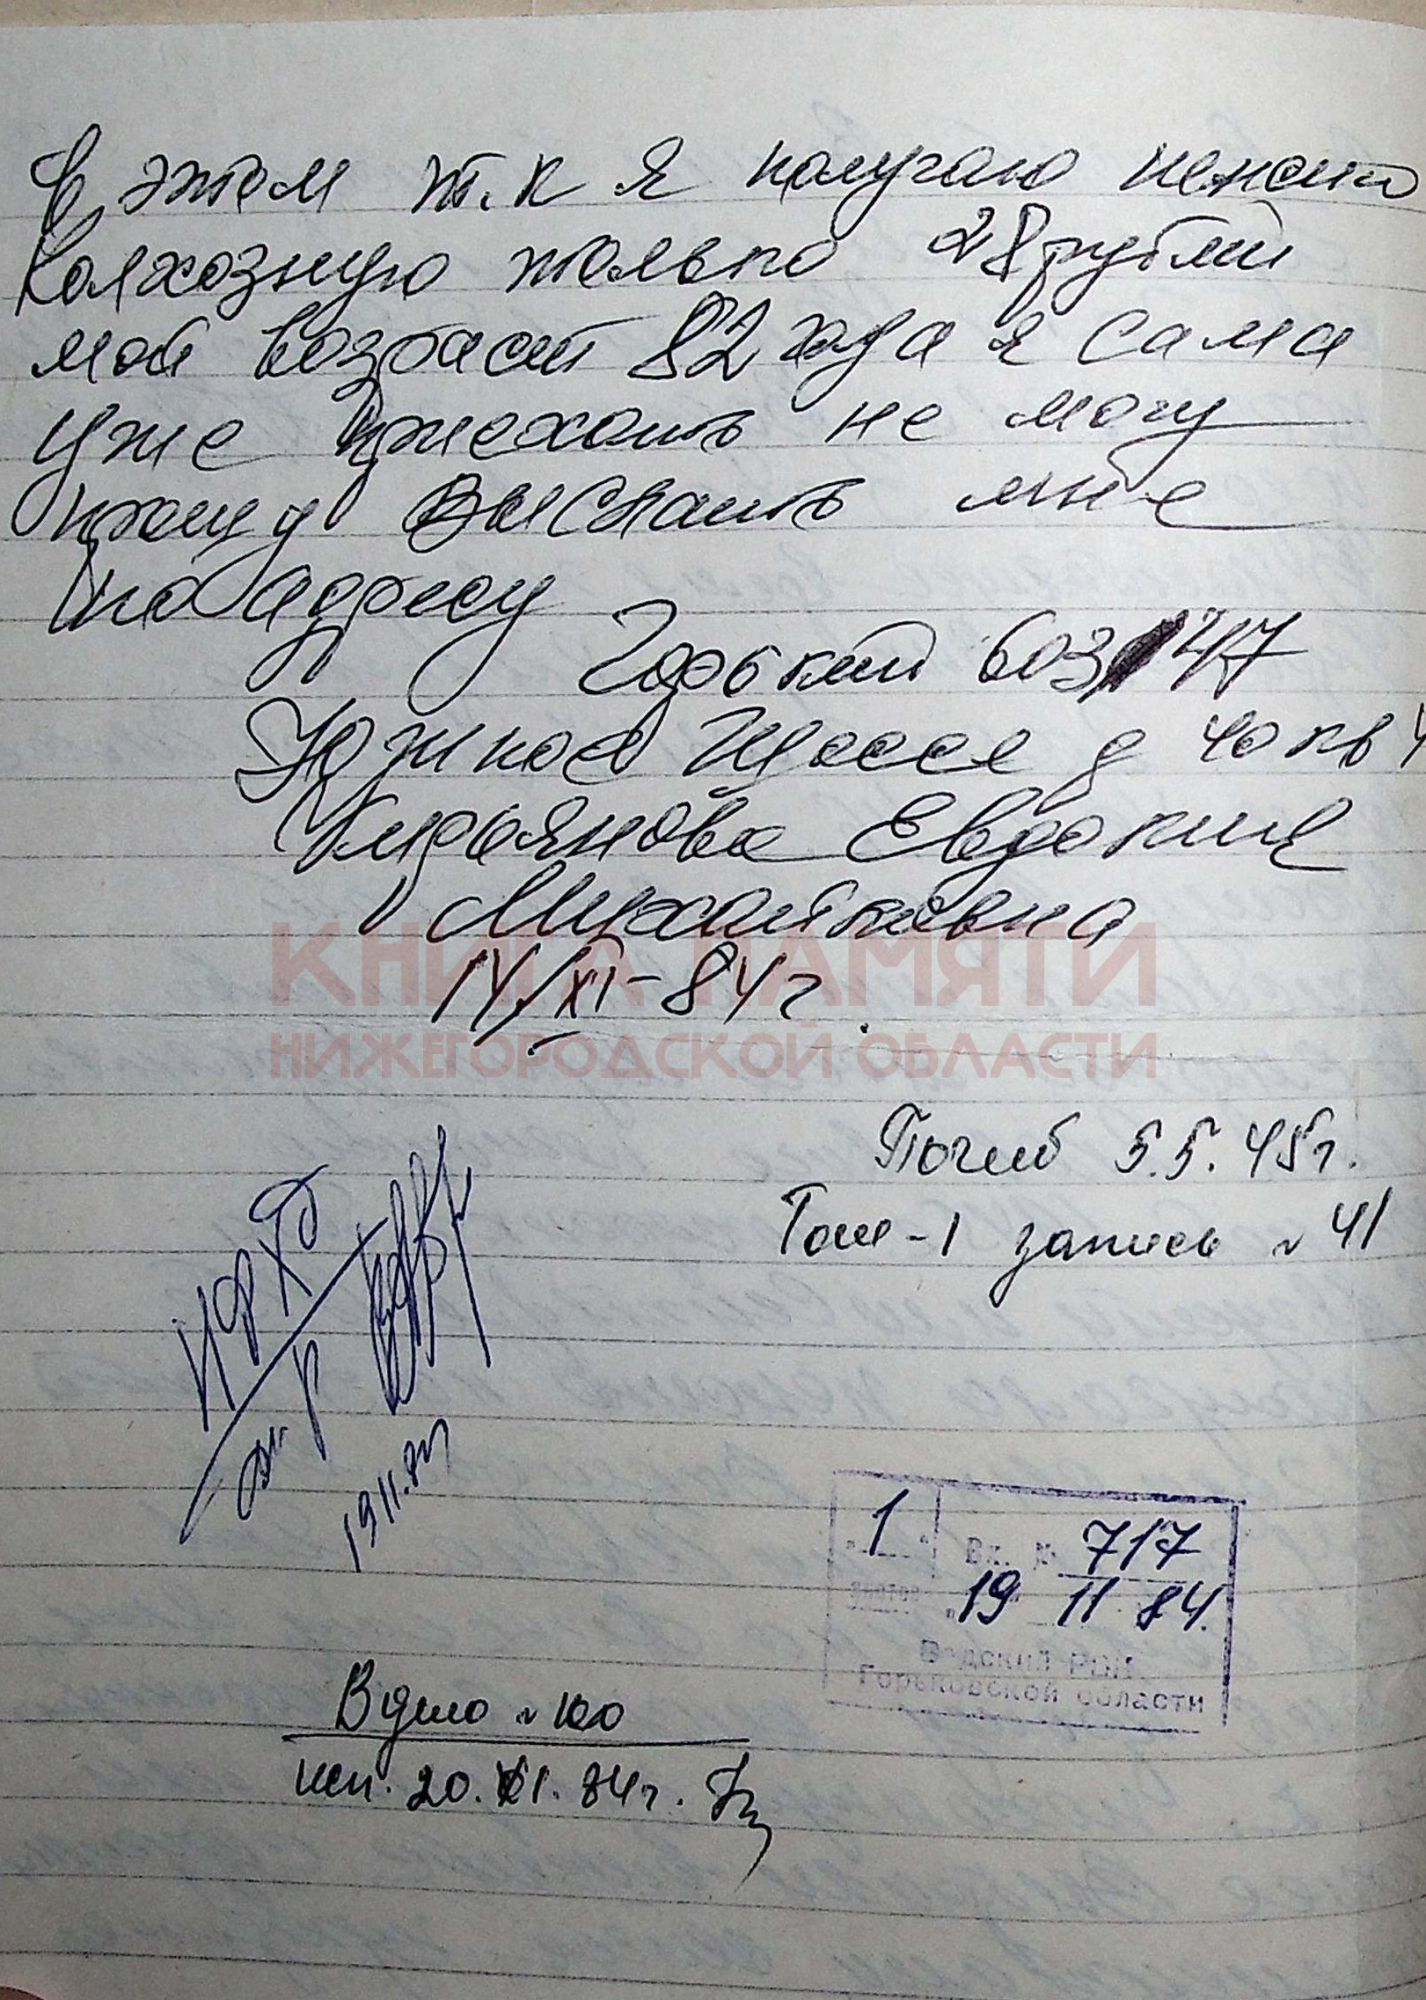 в этом т.к я получаю пенсию
колхозную только 28 рублей
мой возраст 82 года я сама
уже приехать не могу
прошу выслать мне
по адресу
Горький 603 47
Южное Шоссе д 40 кв 4
Кирьянова Евдокия
Михайловна
14/XI-84 г.
КНИГА ПАМЯТИ
НИЖЕГОРОДСКОЙ ОБЛАСТИ
Погиб 5.5.45г.
Том-1 запись № 41
19.11.84
1 Вх. № 717
19 11 84.
Вадский РВК
Горьковской области
В дело № 100
исп. 20.XI.84г.